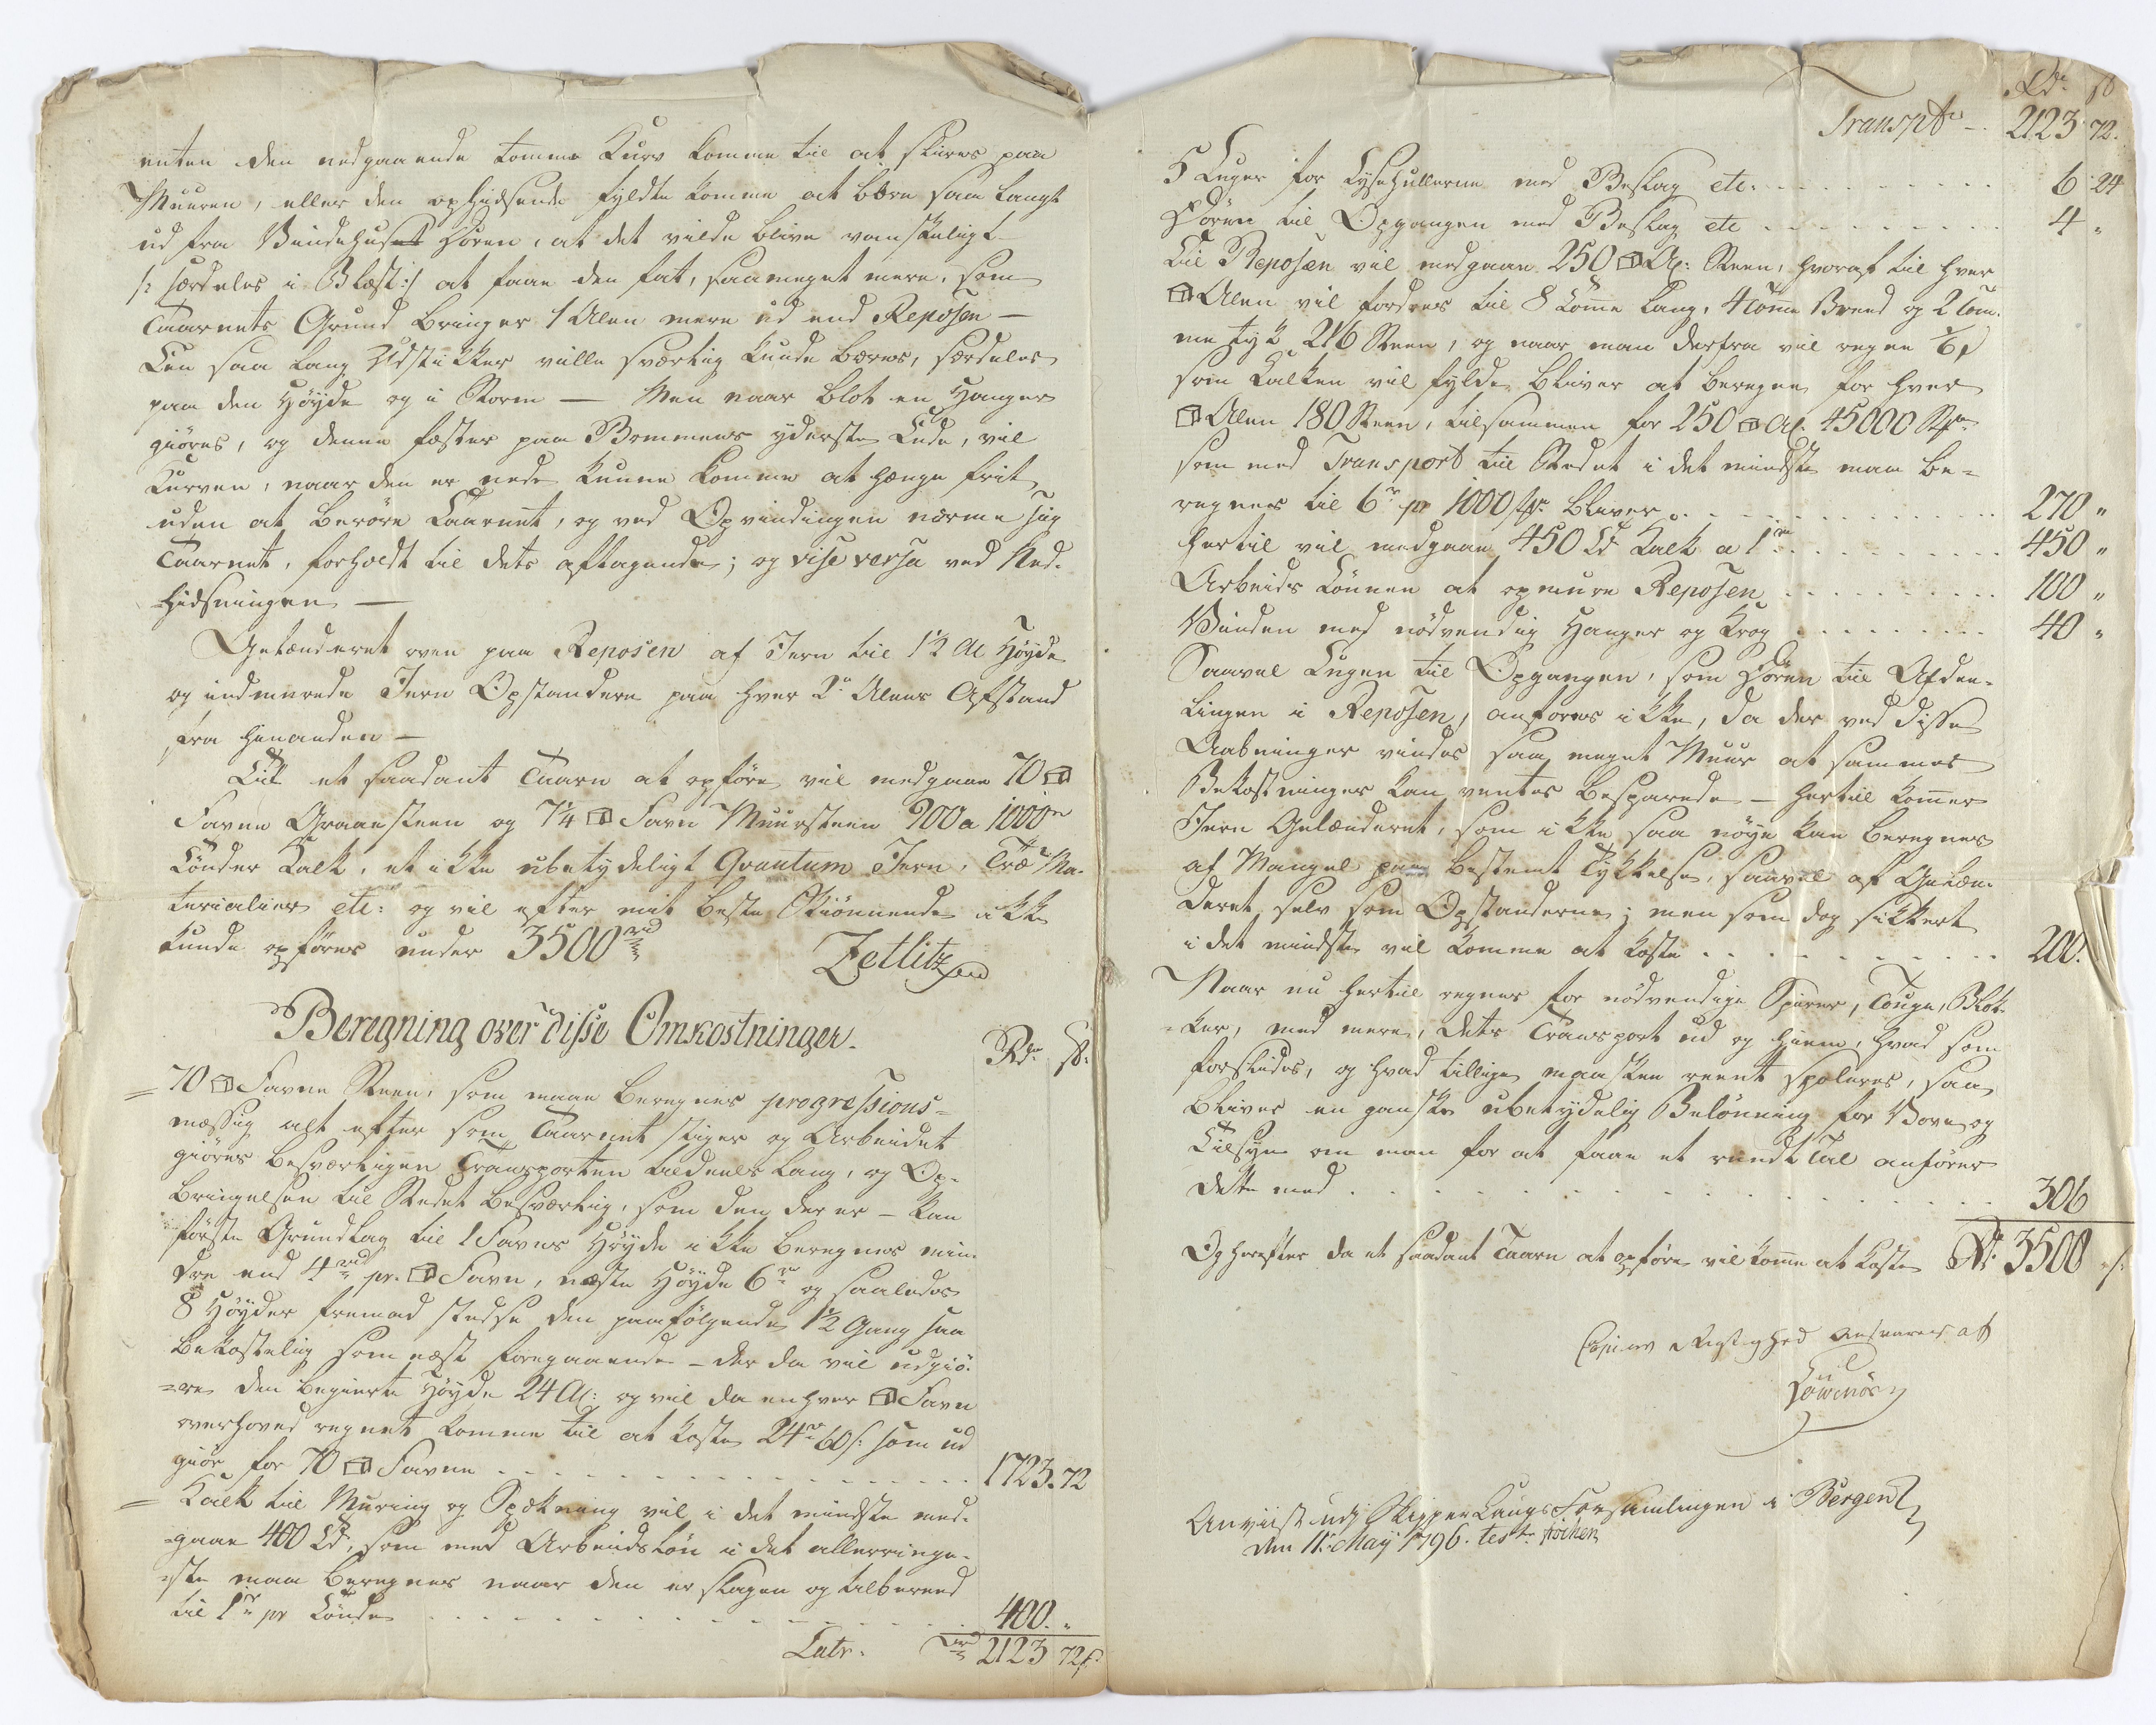 enten den nedgaaende tomme Kurv komme til at skures paa
Muuren, eller den ophidsende fyldte komme at bære saa langt
ud fra Vindehuset Dören, at det vilde blive vanskeligt
/: særdeles i Blæst :/ at faae den fat, saameget mere, som
Taarnets Grund bringer 1 Alen mere ud end Reposen —
En saa lang Udstikker ville sværlig kunde bæres, særdeles
paa den Höyde og i Storm — Men naar blot en Hanger
giöres, og denne fæstes paa Bommens yderste Ende, vil
Kurven, naar den er nede kunne komme at hænge frit
uden at beröre Taarnet, og ved Opvindingen nærme sig
Taarnet, forholdt til dets aftagende; og vise versa ved Ned-
hidsningen —
Gelænderet oven paa Reposen af Jern til 1½ Al Höyde
og indmurede Jern Opstandere paa hver 2 Alens Afstand
fra hinanden —
Til et saadant Taarn at opföre vil medgaae 70 □
Favne Graasteen og 7¼ □ Favn Muursteen 900 a 1000
Tönder Kalk, et ikke ubetydeligt Qvantum Jern, Træ Ma-
terialier etc: og vil efter mit beste Skiönnende ikke
kunde opföres under 3500 rd
Zetlitz
Beregning over disse Omkostninger.
Rdr ß:
= 70 □ Favne Steen, som maae beregnes progressions-
mæssig alt efter som Taarnet stiger og Arbeidet
giöres besværligen Transporten ældeels lang, og Op-
bringelsen til Stedet besværlig, som den der er - kan
förste Grundlag til 1 Favns Höyde ikke beregnes min-
dre end 4 rd pr. □ Favn, næste Höyde 6 r og saaledes
8 Höyder fremad stedse den paafölgende 1½ Gang saa
bekostelig som næst foregaaende - der da vil udgiö-
=re den begierte Höyde 24 Al: og vil da enhver □ Favn
overhoved regnet komme til at koste 24 r 60 s: som ud
giör for 70 □ Favne 1723. 72
= Kalk til Muring og Spækning vil i det mindste med-
gaae 400 Td, som med Arbeidslön i det allerringe-
ste maa beregnes naar den er slagen og tilbereed
til 1 r pr Tönde 400. "
Latr. rd 2123 72 s
Rdr ß
Transpt - 2123 72.
5 Luger for Lysehullerne med Beslag etc. 6 24
Dören til Opgangen med Beslag etc 4 "
Til Reposen vil medgaae 250 □ Al: Steen, hvoraf til hver
□ Alen vil fordres til 8 Tomme lang, 4 Tomme Breed og 2 Tom-
me tyk 216 Steen, og naar man derfra vil regne 1/6
som Kalken vil fylde bliver at beregne for hver
□ Alen 180 Steen, tilsammen for 250 □ Al. 45000 St
som med Transport til Stedet i det mindste maa be-
regnes til 6 r pr 1000 st bliver 270 "
hertil vil medgaae 450 Td Kalk a 1 r 450 "
Arbeids Lönnen at opmure Reposen 100 "
Vinden med nödvendig Hanger og Krog 40 "
Saavel Lugen til Opgangen, som Dören til Afdee-
lingen i Reposen, anföres ikke, da der ved disse
Aabninger vindes saa meget Muur at sammes
Bekostninger kan ventes besparede - hertil kommer
Jern Gelænderet, som ikke saa nöye kan beregnes
af Mangel paa bestemt Tykkelse, saavel af Gelæn-
deret selv som Opstanderne; men som dog sikkert
i det mindste vil komme at koste 200.
Naar nu hertil regnes for nödvendige Spirer, Touge, Blok-
ker, med mere, dets Transport ud og hiem, hvad som
forslides, og hvad tillige maaskee reent spoleres, saa
bliver en ganske ubetydelig Belönning for Vove og
Tilsyn om man for at faae et rundt Tal anförer
dette med 306
Og herefter da et saadant Taarn at opföre vil komme at koste Rd 3500 s:
Copiens Rigtighed Ansvares af
Löwenörn
Anviist udj Skipper Laugs Forsamlingen i Bergen
den 11: May 1796. test: